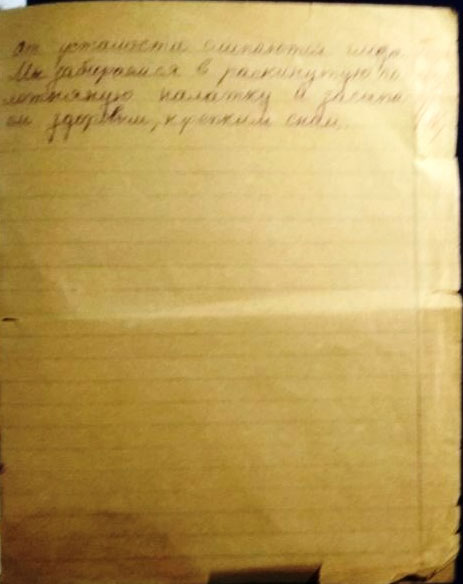 от усталости слипаются глаза.
Мы забираемся в раскинутую по
лотняную палатку и засыпа
ем здоровым, крепким сном.